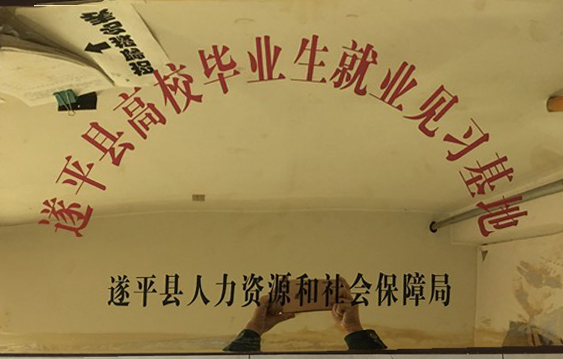 遂平县高校毕业生就业见习基地
遂平县人力资源和社会保障局